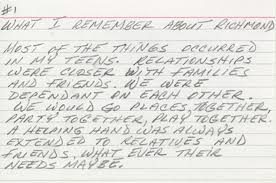 #1
WHAT I REMEMBER ABOUT RICHMOND
MOST OF THE THINGS OCCURRED
IN MY TEENS. RELATIONSHIPS
WERE CLOSER WITH FAMILIES
AND FRIENDS. WE WERE
DEPENDANT ON EACH OTHER.
WE WOULD GO PLACES, TOGETHER,
PARTY TOGETHER, PLAY TOGETHER.
A HELPING HAND WAS ALWAYS
EXTENDED TO RELATIVES AND
FRIENDS, WHAT EVER THEIR
NEEDS MAYBE.